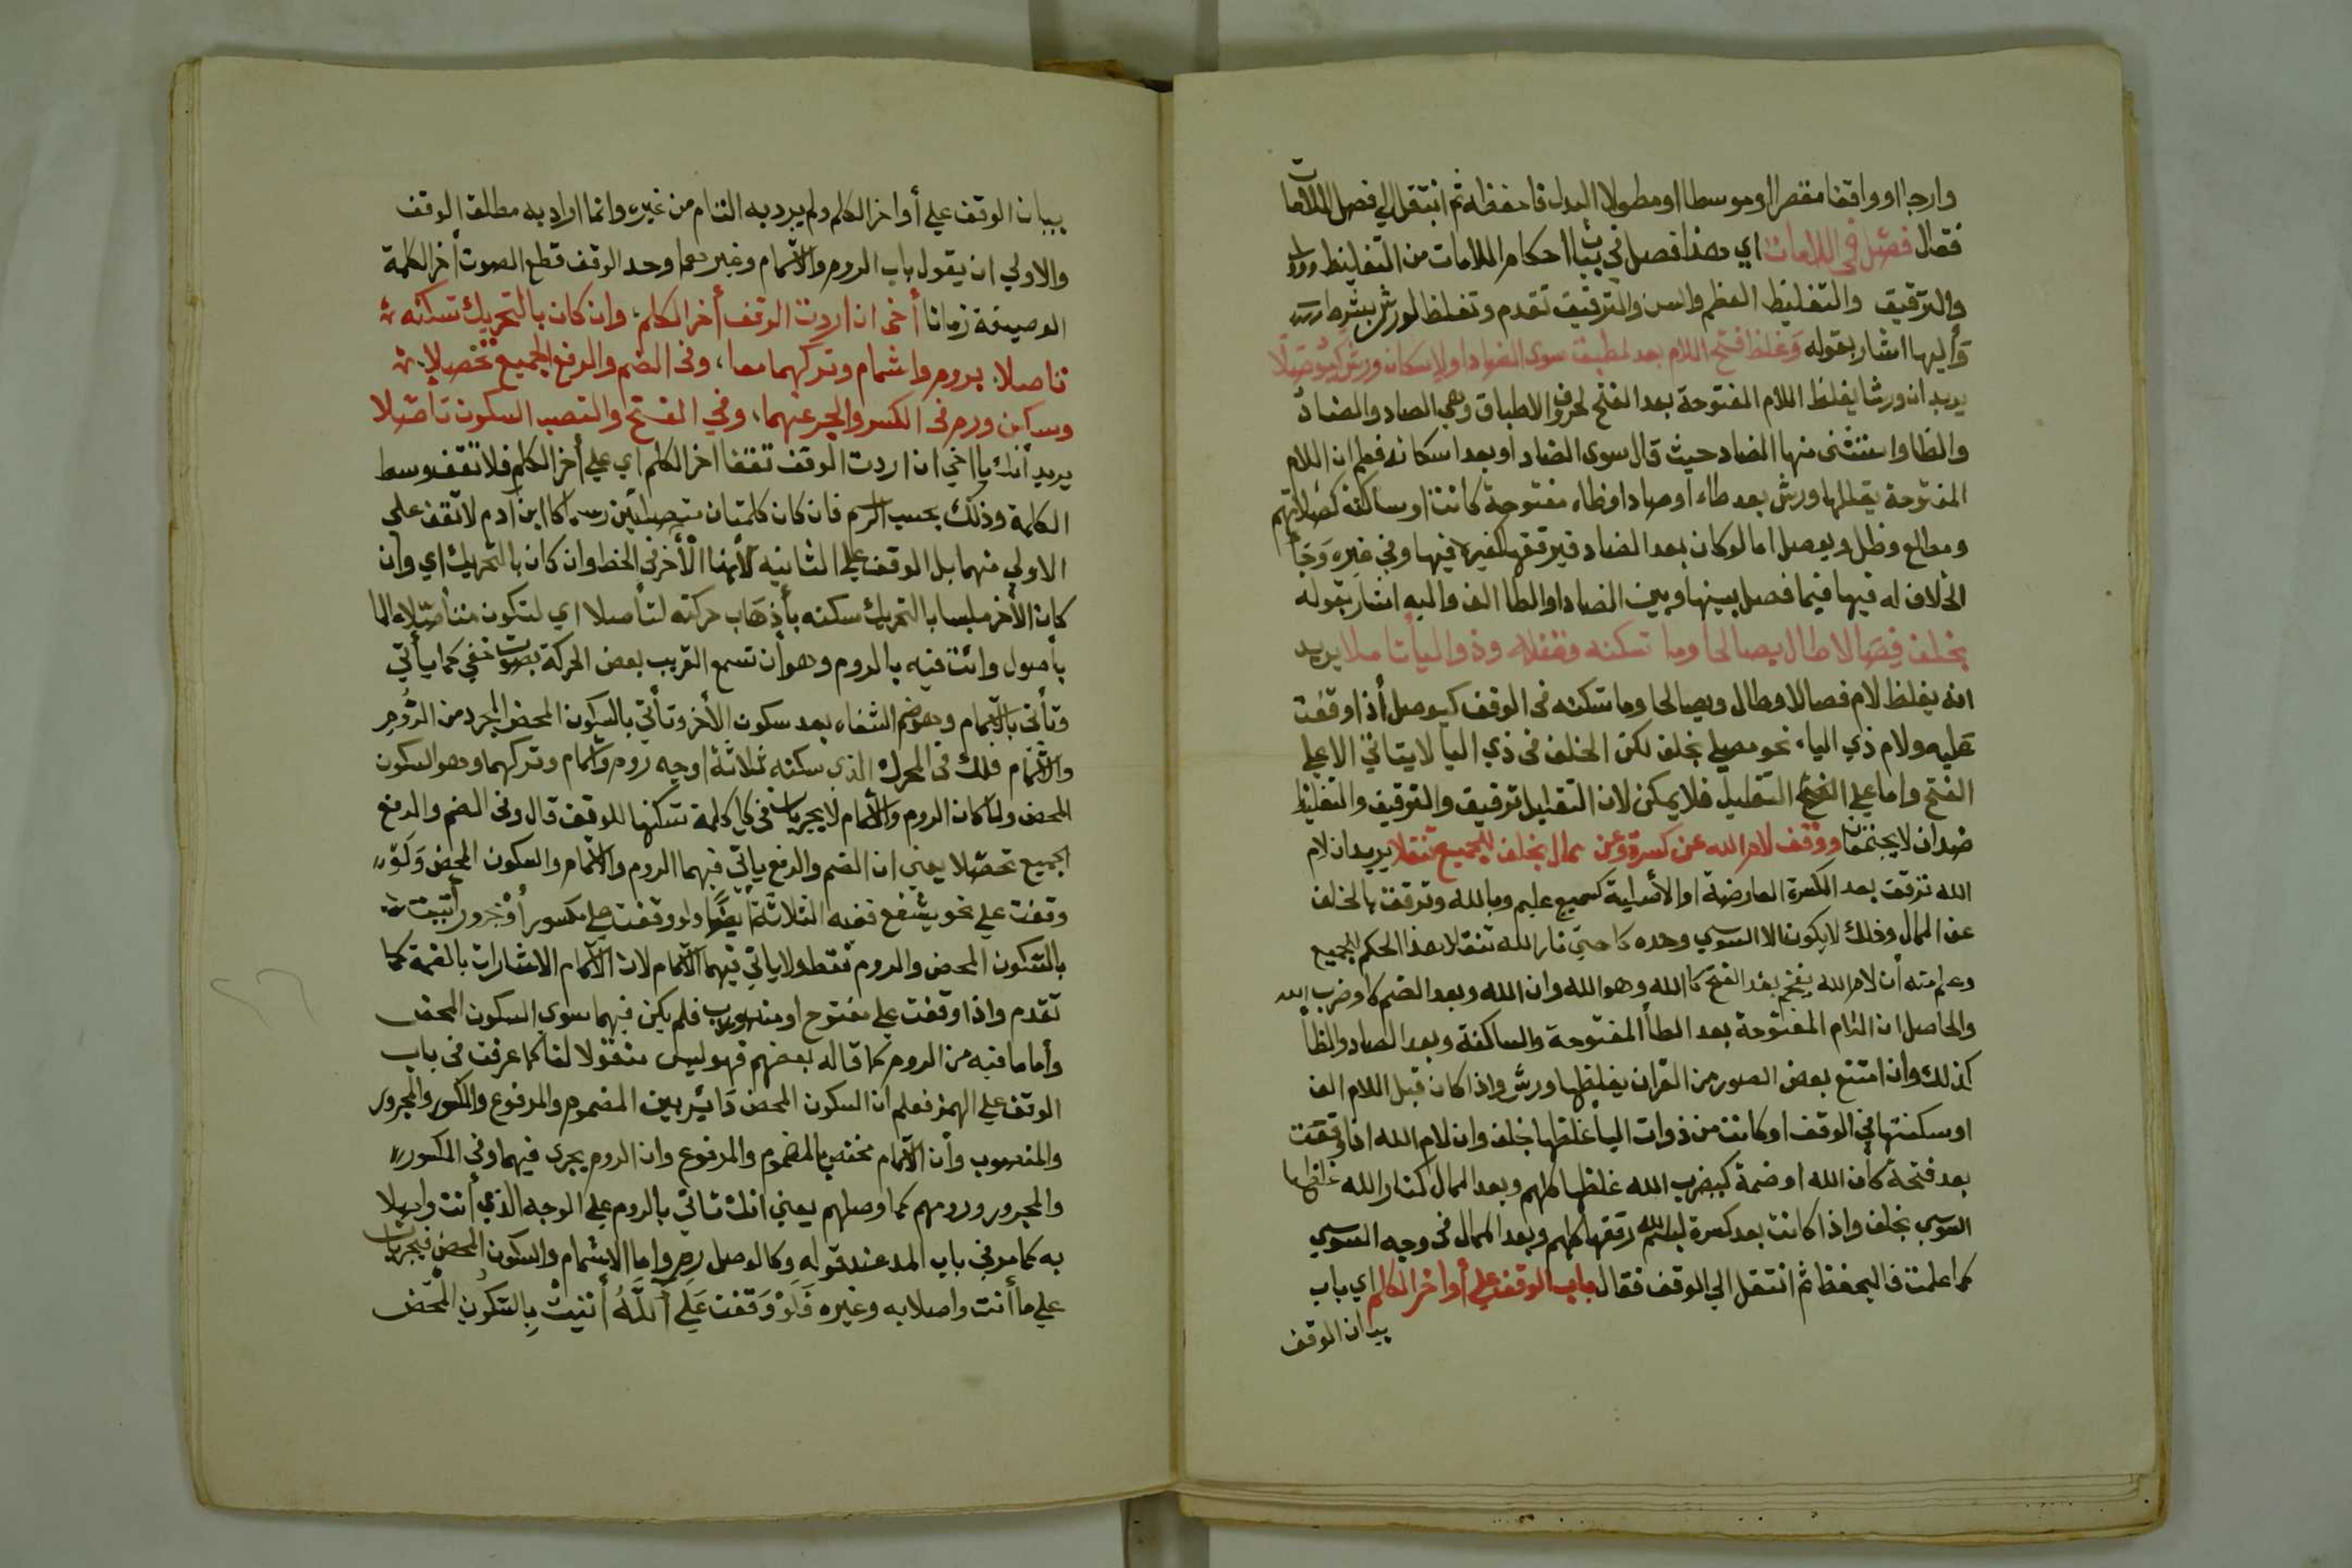 وارجا او واقفا مقصرا او موسطا او مطولا البدل فاحفظه ثم انتقل الي فصل اللامات
فقال فصل في اللامات اي هذا فصل في بيان احكام اللامات من التغليظ
والترقيق والتغليظ الفظم والسن والترقيق تقدم وتغلظ لورش بشرط
وأليها اشار بقوله وَغلظ افتح اللام بعد لمطبق سوى الضاد او لاسكان ورش كيوصلا
يريد ان ورشا يغلظ اللام المفتوحة بعد الفتح لحروف الاطباق وهي الصاد والضاد
والظا واستثنى منها الضاد حيث قال سوى الضاد او بعد اسكانه فعلم ان اللام
المفتوحة يغلظها ورش بعد طاء أو صاد او ظاء مفتوحة كانت او ساكنة كصلاتهم
ومطالع وظل ويوصل اما لو كان بعد الضاد فيرققها كغيره فيها وفي غيره وَجَا
الخلاف له فيها فيما فصل بينها وبين الصاد او الطا الف واليه اشار بقوله
بخلف فِصَالا طال يصالحا وما تسكنه وقفا وذو اليأت ملا يريد
انه يغلظ لام فصالا وطال ويصالحا وما تسكنه في الوقف كيوصل أذا وقفت
عليه ولام ذي الياء نحو مصلى بخلف لكن الخلف في ذي اليا لا يتاتي الا علي
الفتح واما علي التقليل فلا يمكن لان التقليل ترقيق والترقيق والتغليظ
ضدان لا يجتمعان ورقق لام الله عن كسرة وعن ممال بخلف للجميع تنقلا يريد ان لام
الله ترقق بعد الكسرة العارضة او الأصلية كسميع عليم وبالله وترقق بالخلف
عن الممال وذلك لا يكون الا السوسي وحده كا حتي نار الله تنقلا هذا الحكم للجميع
وعلم منه أن لام الله يفخم بعد الفتح كا الله وهو الله وان الله وبعد الضم كا وضرب الله
والحاصل ان اللام المفتوحة بعد الطأ المفتوحة والساكنة وبعد الصاد والظأ
كذلك وان امتنع بعض الصور من القران يغلظها ورش واذا كان قبل اللام الف
او سكنتها في الوقف او كانت من ذوات اليأ غلظها بخلف وان لام الله اذا وقعت
بعد فتحة كان الله او ضمة كيضرب الله غلظها كلهم وبعد الممال كنار الله غلظها
السوسي بخلف واذا كانت بعد كسرة لله رققها كلهم وبعد الممال في وجه السوسي
كما علمت فاليحفظ ثم انتقل الي الوقف فقال باب الوقف علي أواخر الكلم اي باب
بيان الوقف
بيان الوقف علي أواخر الكلم ولم يرد به التام من غيره وانما اراد به مطلق الوقف
والاولي ان يقول باب الروم والاشمام وغيرهما وحد الوقف قطع الصوت أخر الكلمة
الوصيفة زمانا أخي ان اردت الوقف أخر الكلم، وان كان بالتحريك تسكنه
تاصلا، بروم واشمام وتركهما معا، وفي الضم والرفع الجميع تحصلا
وسكن ورم في الكسر والجر عنهما، وفي الفتح والنصب السكون تأصّلا
يريد أنك يا اخي ان اردت الوقف تقف اخر الكلم اي علي أخر الكلم فلا تقف وسط
الكلمة وذلك بحسب الرسم فان كان كلمتان متصلتين كا ابن آدم لا تقف على
الاولي منهما بل الوقف علي الثانيه لأنها الأخر في الخط وان كان بالتحريك اي وان
كان الأخر ملبسا بالتحريك سكنه بأذهَاب حركته لتأصلا اي لتكون متأصّلا
باصول وائت فيه بالروم وهو أن تسمع القريب بعض الحركة بصوت خفي كما يأتي
وتأتي بالاشمام وهو ضم الشفاه بعد سكون الأخر وتأتي بالسكون المحض المجرد من الرَّوم
والاشمام فلك في المحرك الذي سكنته ثلاثة اوجه روم واشمام وتركهما وهو السكون
المحض ولما كان الروم والاشمام لا يجريان في كل كلمة تسكنها للوقف قال وفي الضم والرفع
الجميع تحصّلا يعني ان الضم والرفع ياتي فيهما الروم والاشمام والسكون المحض وَلَوْ
وقفت علي نحو يشفع ففيه الثلاثة أيضًا ولو وقفت علي مكسور أو مجرور أتيت
بالسّكون المحض والروم فقط ولا ياتي فيهما الاشمام لان الاشمام الاشارات بالضمة كما
تقدم واذا وقفت علي مفتوح او منصوب فلم يكن فيهما سوى السكون المحض
وأما ما فيه من الروم كما قاله بعضهم فهو ليس منقولا لنا كما عرفت في باب
الوقف علي الهمز فعلم ان السكون المحض دَائر بين المضموم والمرفوع والمكسور والمجرور
والمنصوب وأن الاشمام مختص بالمضموم والمرفوع وان الروم يجري فيهما وفي المكسور
والمجرور ورومهم كما وصلهم يعني انك تاتي بالروم علي الوجه الذي أنت واصلا
به كما مر في باب المد عند قوله وكالوصل رم واما الاشمام والسكون المحض فيجريان
علي ما أنت واصلا به وغيره فَلَوْ وَقَفْت عَلي آللَّهُ أَتَيْتَ بِالسّكُونِ الْمَحْض